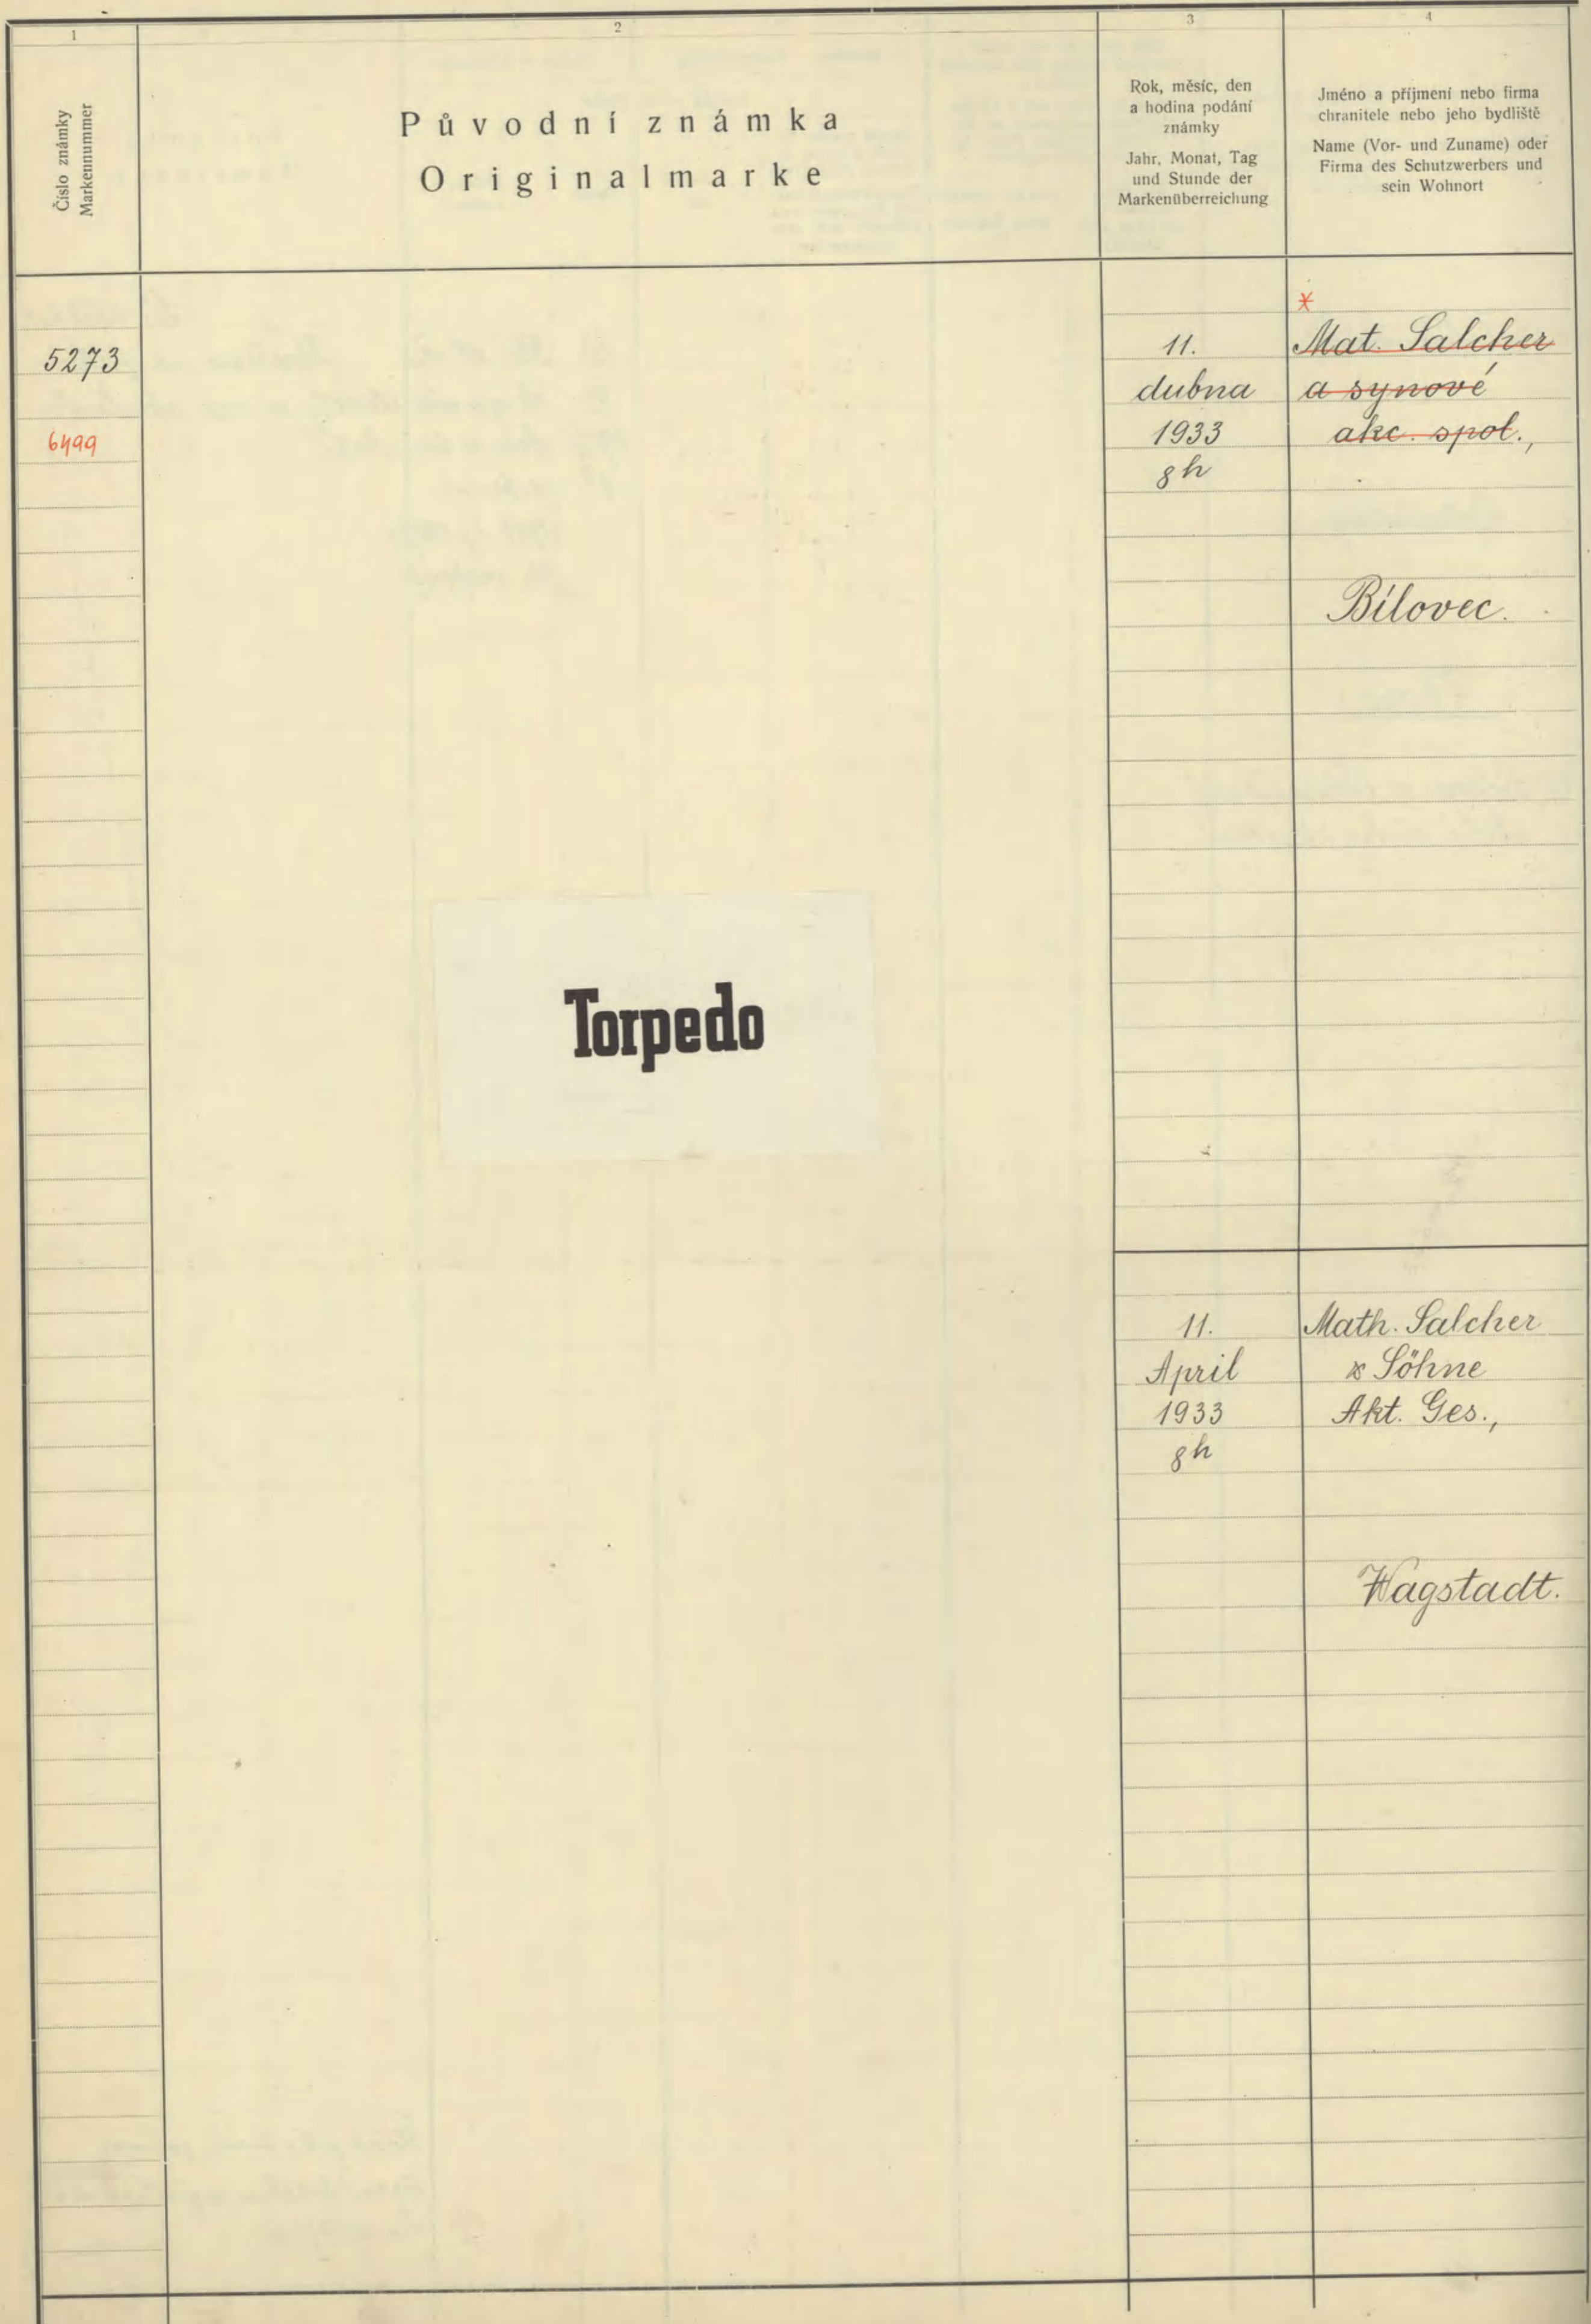 1
2
3
4
Číslo známky
Markennummer
Původní známka
Originalmarke
Rok, měsíc, den
a hodina podání
známky
Jahr, Monat, Tag
und Stunde der
Markenüberreichung
Jméno a příjmení nebo firma
chranitele nebo jeho bydliště
Name (Vor- und Zuname) oder
Firma des Schutzwerbers und
sein Wohnort
5273
6499
11.
dubna
1933
8h
*
Mat. Salcher
a synové
akc. spol.,
Bílovec.
Torpedo
11.
April
1933
8h
Math. Salcher
& Söhne
Akt. Ges.,
Wagstadt.